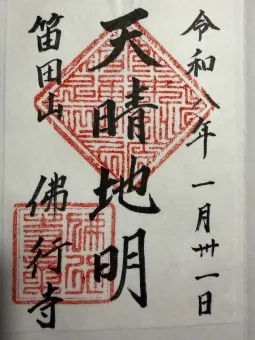 令和八年 一月卅一日
天晴地明
笛田山 佛行寺